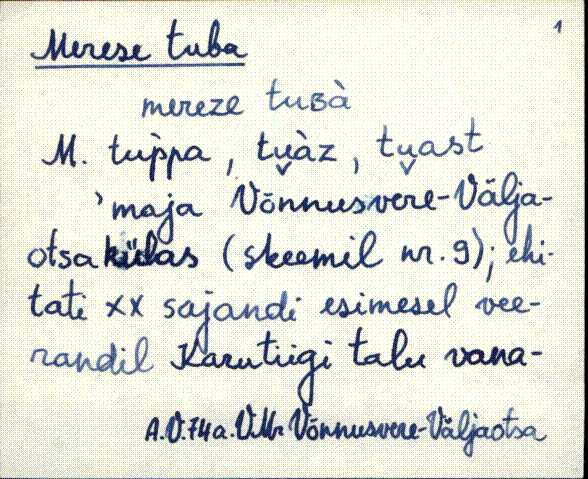 1
Merese tuba
mereze tuʙà
M. tup̀pa, tu̯àz, tu̯ast
'maja Võnnusvere-Välja-
otsa külas (skeemil nr. 9); ehi-
tati XX sajandi esimesel vee-
randil Karutiigi talu vana-
A.V. 74a. V.Mr Võnnusvere-Väljaotsa